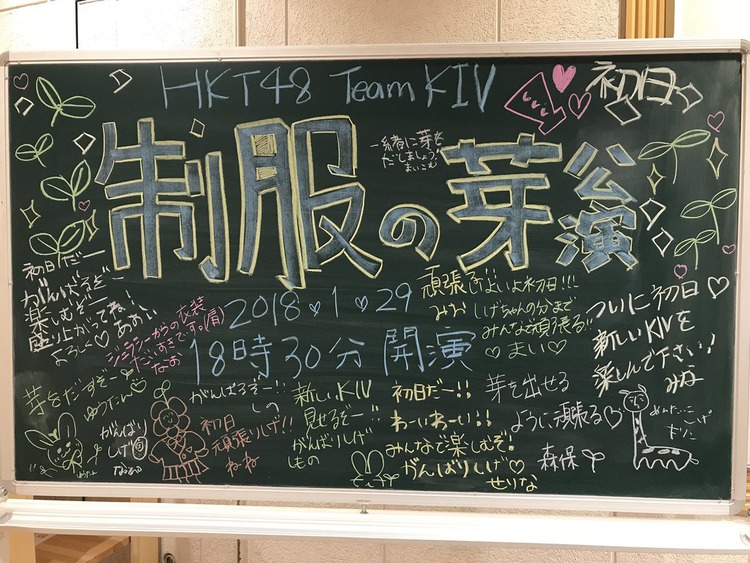 HKT48 Team KIV
初日っ
制服の芽公演
一緒に芽を
だしましょう!
まいこむ
2018♡1♡29
18時30分 開演
初日だー
がんばるぞー
楽しむぞー
盛り上がってね!
よろしく♡
ジェラシーからの衣装
だいすきです。(肩)
なお
頑張るばよいよ初日!!!
みお
しげちゃんの分まで
みんなで頑張る!!
♡まい♡
ついに初日♡
新しいKIVを
楽しんで下さい!
みな
芽を出すぞー
ゆうたん♡
がんばり
しげ
がんばるぞー!!
しの
初日
頑張りしげ!!
ねね
新しいKIV
見せるぞー!!
がんばりしげ
しもの
初日だー!!
わーいわーい!!
みんなで楽しむぞ!
がんばりしげ♡
せりな
芽を出せる
ように頑張る♡
森保